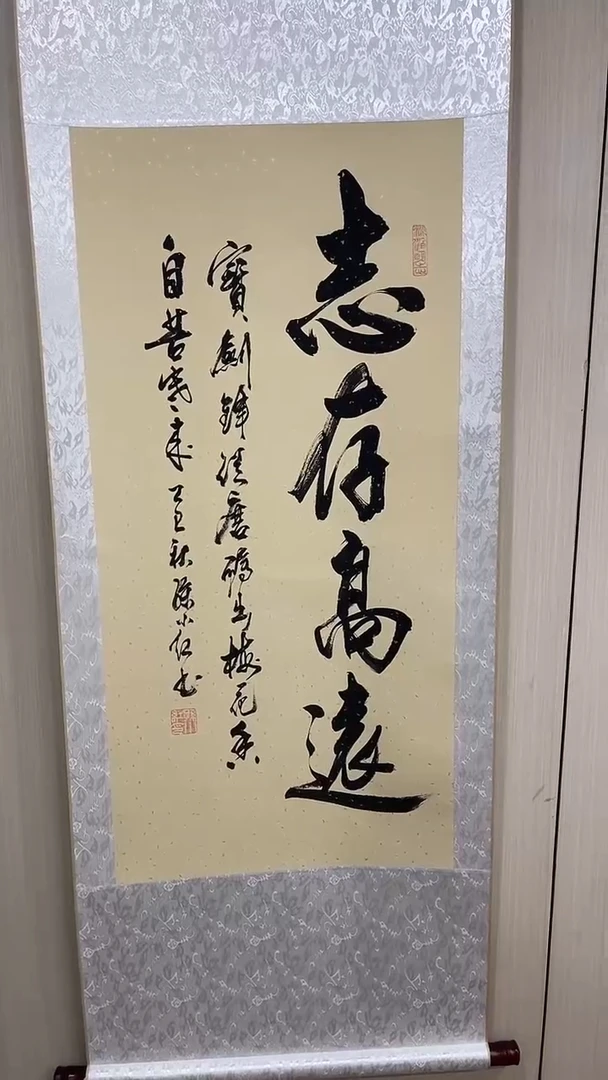 志存高遠
寶劍鋒從磨礪出梅花香
自苦寒來 秋陳小红书